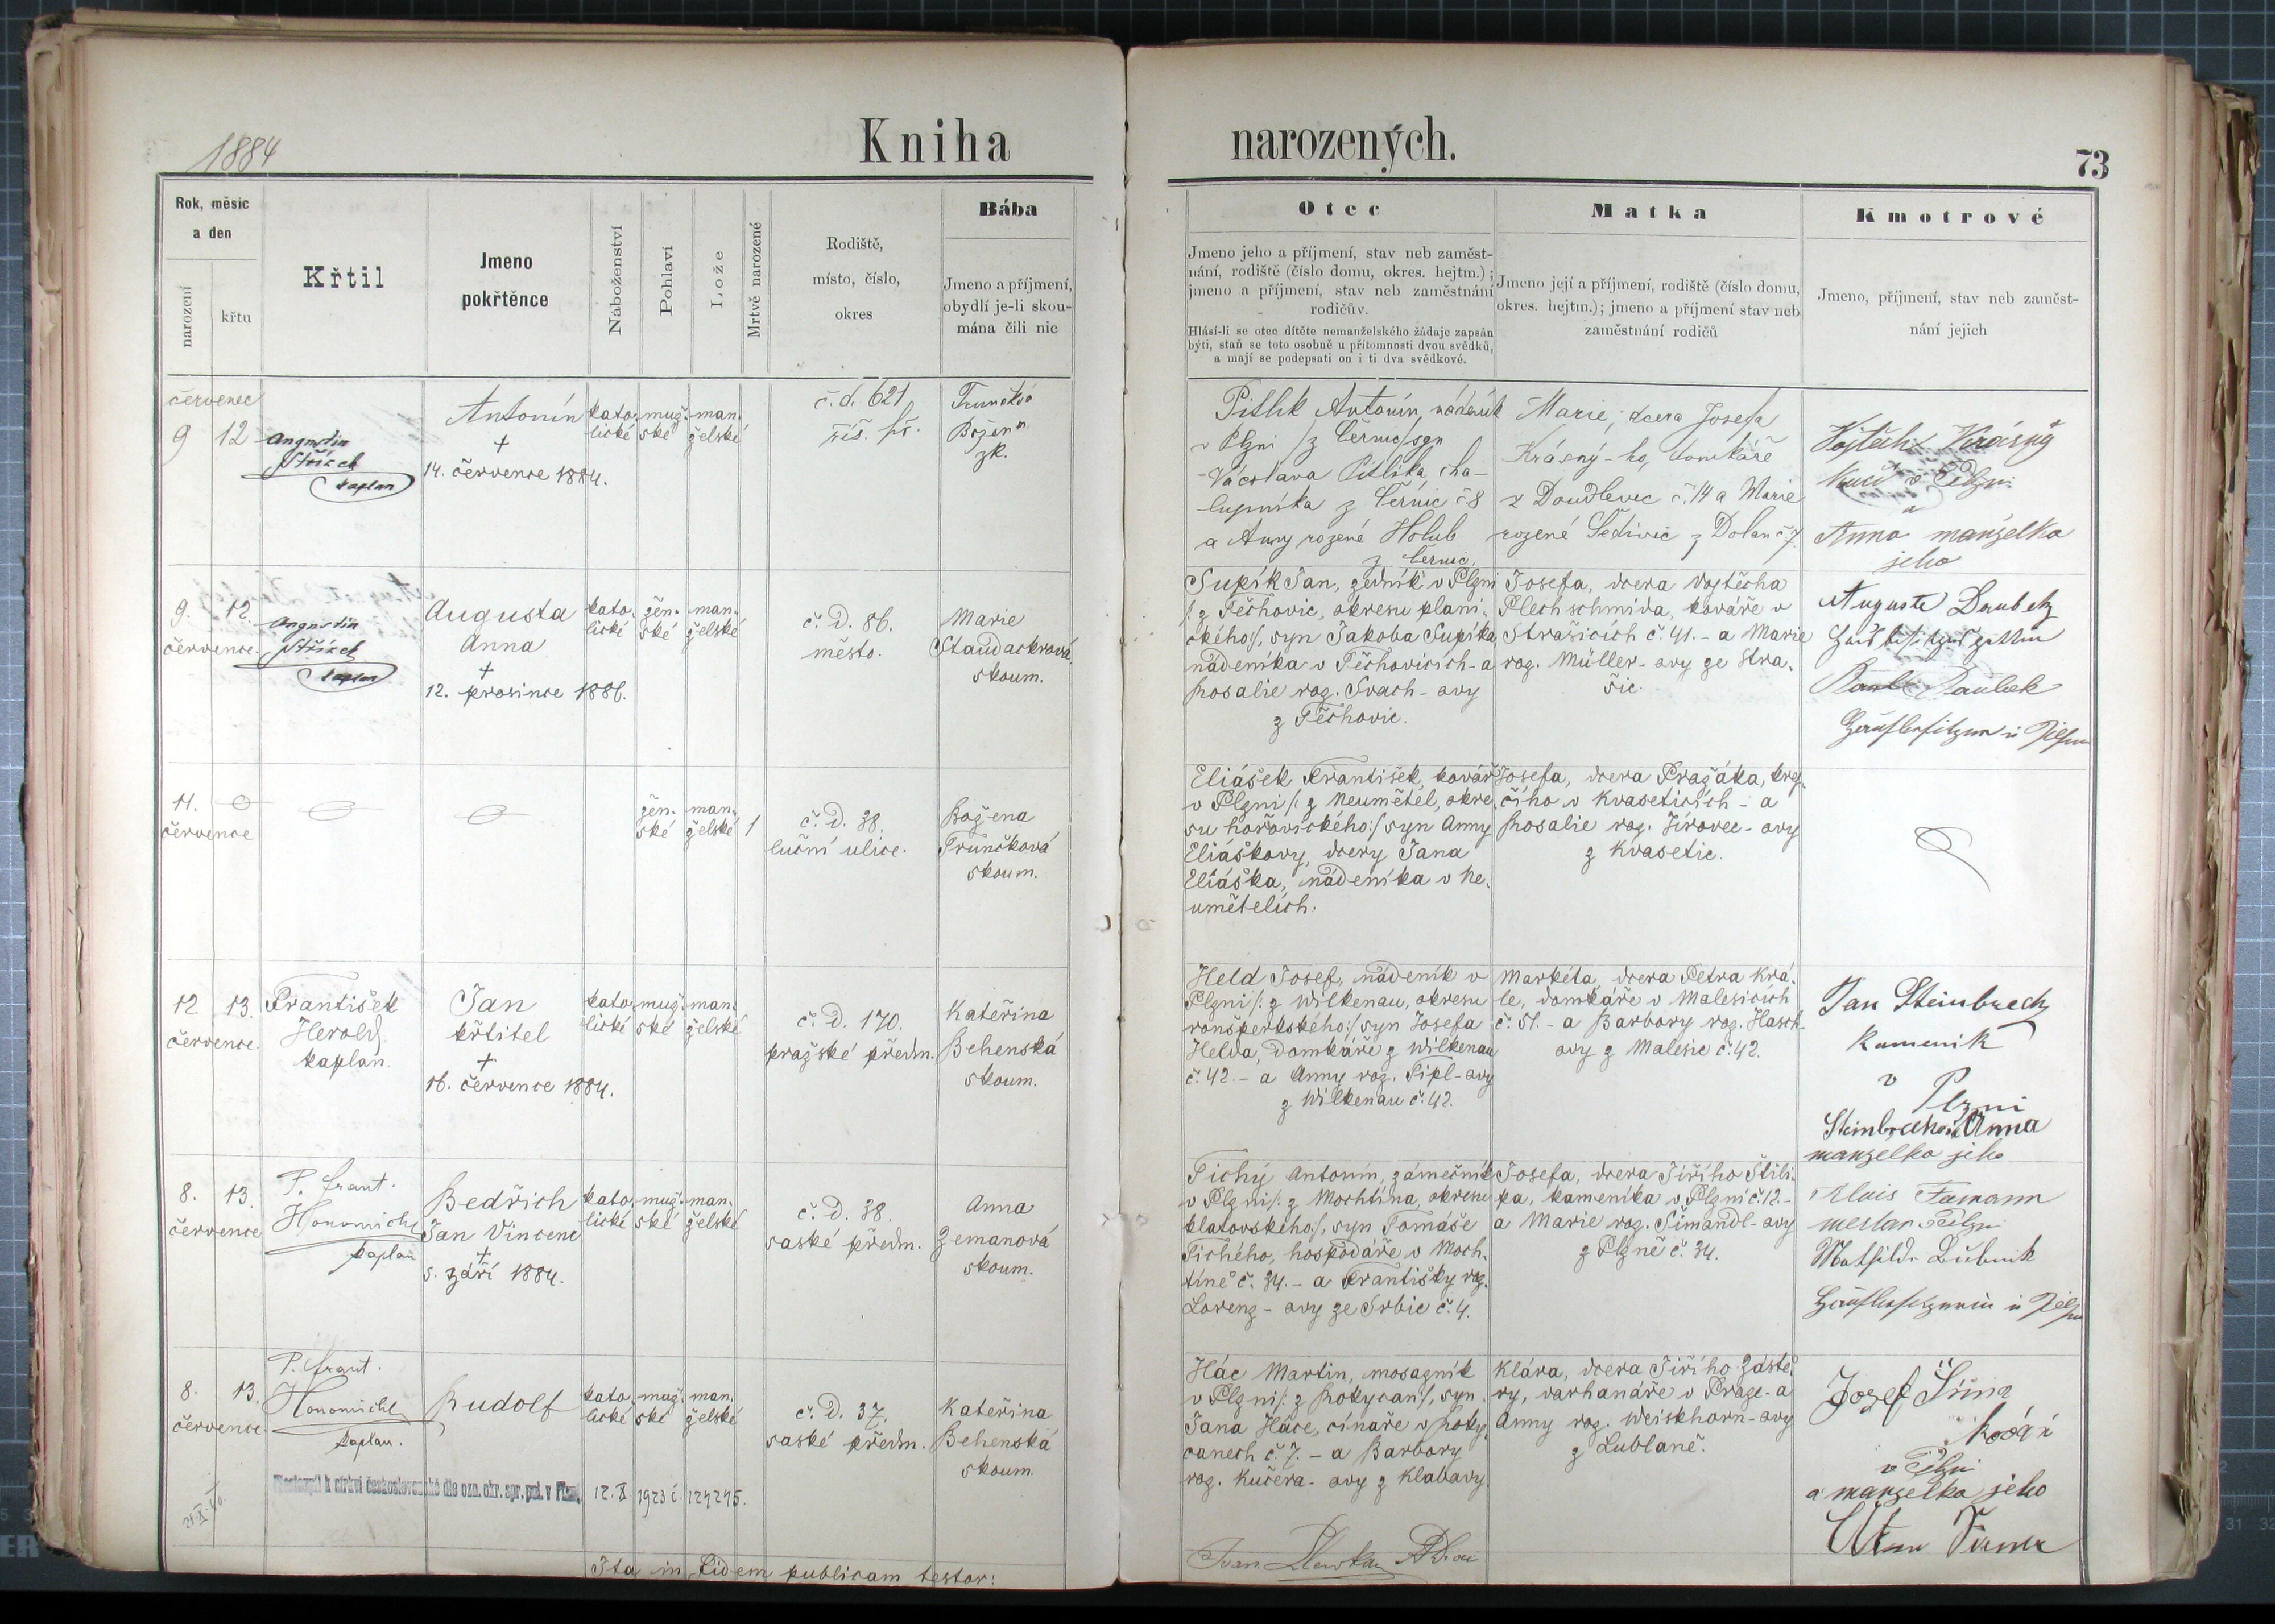 1884
Kniha
narozených.
73
Rok, měsíc
a den
narození
křtu
Křtil
Jmeno
pokřtěnce
Náboženství
Pohlaví
Lože
Mrtvě narozené
Rodiště,
místo, číslo,
okres
Bába
Jmeno a příjmení,
obydlí je-li skou-
mána čili nic
Otec
Jmeno jeho a příjmení, stav neb zaměst-
nání, rodiště (číslo domu, okres. hejtm.);
jmeno a příjmení, stav neb zaměstnání
rodičův.
Hlásí-li se otec dítěte nemanželského žádaje zapsán
býti, staň se toto osobně u přítomnosti dvou svědků,
a mají se podepsati on i ti dva svědkové.
Matka
Jmeno její a příjmení, rodiště (číslo domu,
okres. hejtm.); jmeno a příjmení stav neb
zaměstnání rodičů
Kmotrové
Jmeno, příjmení, stav neb zaměst-
nání jejich
červenec
9
12
Augustin
Střížek
kaplan
Antonín
+
14. července 1884.
kato-
lické
muž.
ské
man.
želské
č. d. 621
říš. př.
Trunečko
Božena
zk.
Pitlik Antonín, nádeník
v Plzni /z Černic/ syn
Václava Pitlíka, cha-
lupníka z Černic č 8
a Anny rozené Holub
z Černic.
Marie, dcera Josefa
Krásný-ho, domkáře
z Doudlevec č. 14 a Marie
rozené Šedivic z Dolan č 7.
Vojtěch Krásný
v Plzni
a
Anna manželka
jeho
9.
12.
července.
Augustin
Střížek
kaplan
Augusta
Anna
+
12. prosince 1886.
kato.
lické
žen.
ské
man.
želské
č. D. 86.
město.
Marie
Staudackrová
skoum.
Supík Jan, zedník v Plzni
/: z Těchovic, okresu plani.
ckého:/, syn Jakoba Supíka
nádeníka v Těchovicích - a
Rosalie roz. Svach - ovy
z Těchovic.
Josefa, dcera Vojtěcha
Plechschmida, kováře v
Strašicích č. 41. - a Marie
roz. Müller - ovy ze Stra.
šic.
Auguste Daubek
Daubek
in Pilsen
11.
července
žen.
ské
man.
želské
1
č. D. 38.
luční ulice.
Božena
Trunčková
skoum.
Eliášek František, kovář
v Plzni /: z Neumětel, okre.
su hořovického:/ syn Anny
Eliáškovy, dcery Jana
Eliáška, nádeníka v Ne.
umětelích.
Josefa, dcera Pražáka, krej.
čího v Kvaseticích - a
Rosalie roz. Jírovec - ovy
z Kvasetic.
12
13.
července.
František
Herold
kaplan.
Jan
křtitel
+
16. července 1884.
kato.
lické
muž.
ské
man.
želské
č. D. 170.
pražské předm.
Kateřina
Behenská
skoum.
Held Josef, nádeník v
Plzni /: z Wilkenau, okresu
ronšperkského:/ syn Josefa
Helda, domkáře z Wilkenau
č. 42. - a Anny roz. Tipl - ovy
z Wilkenau č. 42.
Markéta, dcera Petra Krá.
le, domkáře v Malesicích
č. 51. - a Barbory roz. Hasch-
ovy z Malesic č. 42.
Jan Steinbrech
Kameník
v
Plzni
Anna
manželka jeho
8.
13.
července
P. Frant.
Hononichl
kaplan
Bedřich
Jan Vincenc
+
5. září 1884.
kato.
lické
muž.
ské
man.
želské
č. D. 38.
saské předm.
Anna
Zemanová
skoum.
Tichý Antonín, zámečník
v Plzni /: z Mochtína, okresu
klatovského:/, syn Tomáše
Tichého, hospodáře v Moch.
tíně č. 34. - a Františky roz.
Lorenz - ovy ze Srbic č. 4.
Josefa, dcera Jiřího Štili.
pa, kameníka v Plzni č. 12. -
a Marie roz. Šimandl - ovy
z Plzně č. 34.
Alois
in Pilsen
8.
13.
července
P. Frant.
Hononichl
kaplan.
Rudolf
kato.
lické
muž.
ské
man.
želské
č. D. 37.
saské předm.
Kateřina
Behenská
skoum.
Hác Martin, mosazník
v Plzni /: z Rokycan:/, syn
Jana Háce, cínaře v Roky.
canech č. 7. - a Barbory
roz. Kučera - ovy z Klabavy.
Klára, dcera Jiřího Zástě.
ry, varhanáře v Praze - a
Anny roz. Weiskhorn - ovy
z Lublaně.
Josef Šíma
Kovář
v Plzni
a manželka jeho
Přestoupil k církvi československé dle ozn. okr. spr. pol. v Plzni
12. X. 1923 č. 129295.
Ita in fidem publicam testor: